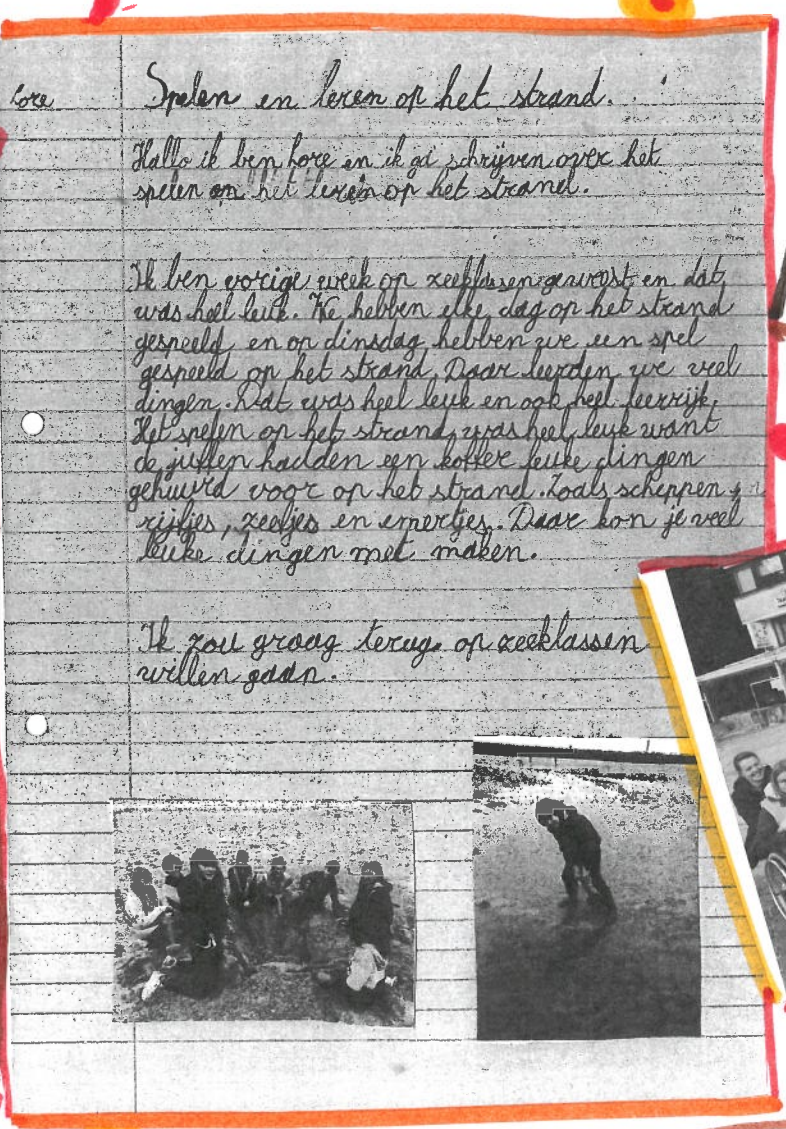 Lore
Spelen en leren op het strand.
Hallo ik ben Lore en ik ga schrijven over het
spelen en het leren op het strand.
Ik ben vorige week op zeeklassen geweest en dat
was heel leuk. We hebben elke dag op het strand
gespeeld en op dinsdag hebben we een spel
gespeeld op het strand. Daar leerden we veel
dingen. Dat was heel leuk en ook heel leerrijk.
Het spelen op het strand was heel leuk want
de juffen hadden een koffer leuke dingen
gehuurd voor op het strand. Zoals scheppen,
zeefjes en emertjes. Daar kon je veel
leuke dingen met maken.
Ik zou graag terug op zeeklassen
willen gaan.